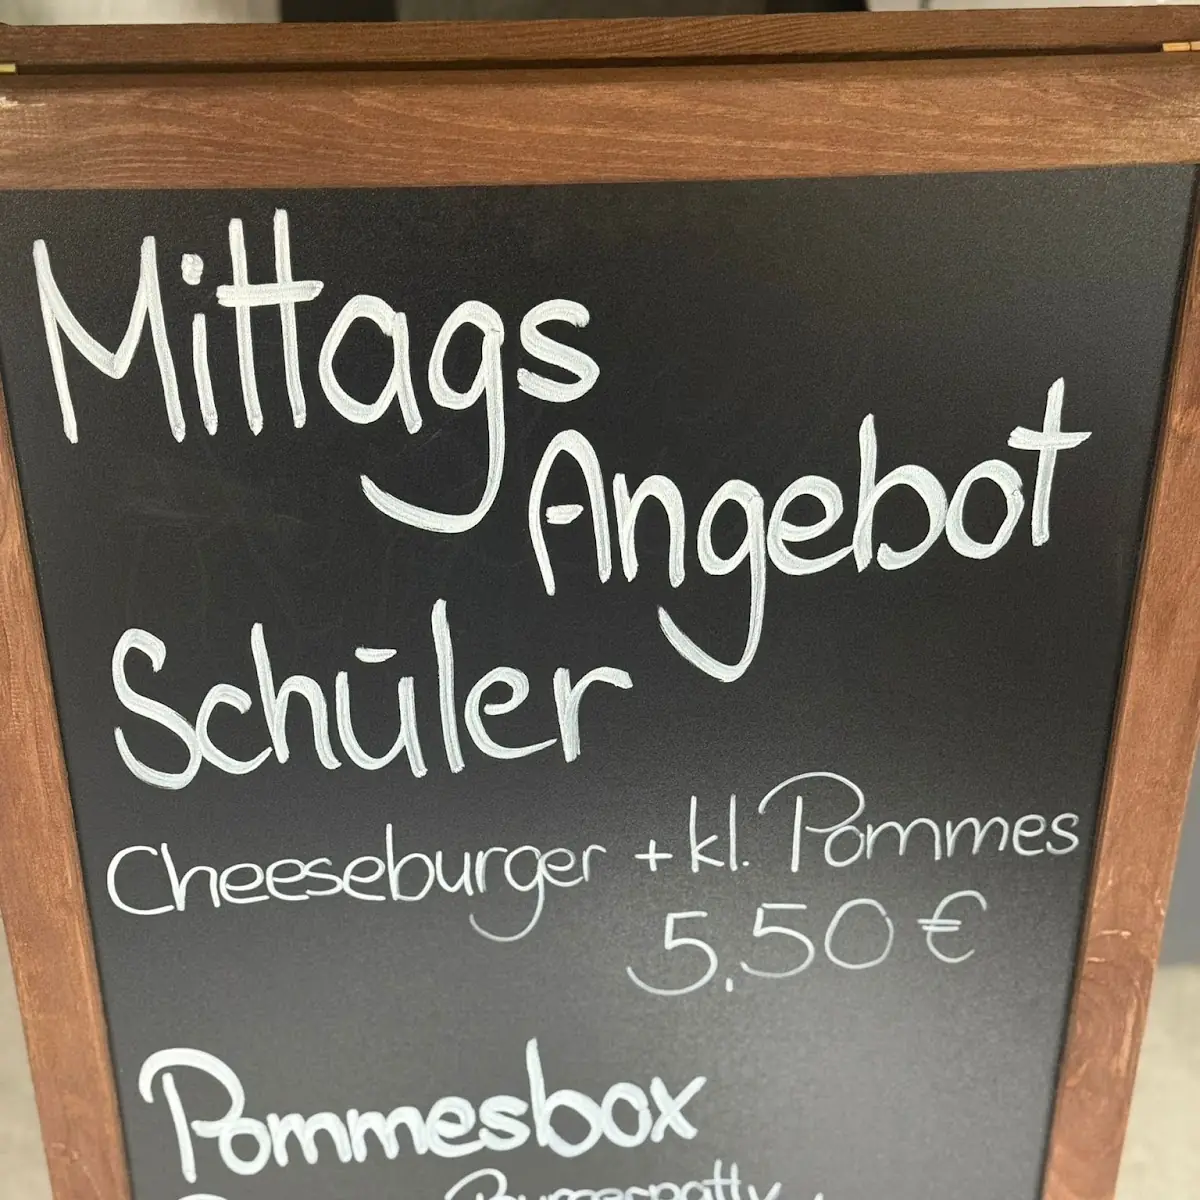 Mittags
Angebot
Schüler
Cheeseburger + kl. Pommes
5,50 €
Pommesbox
Burgerpatty